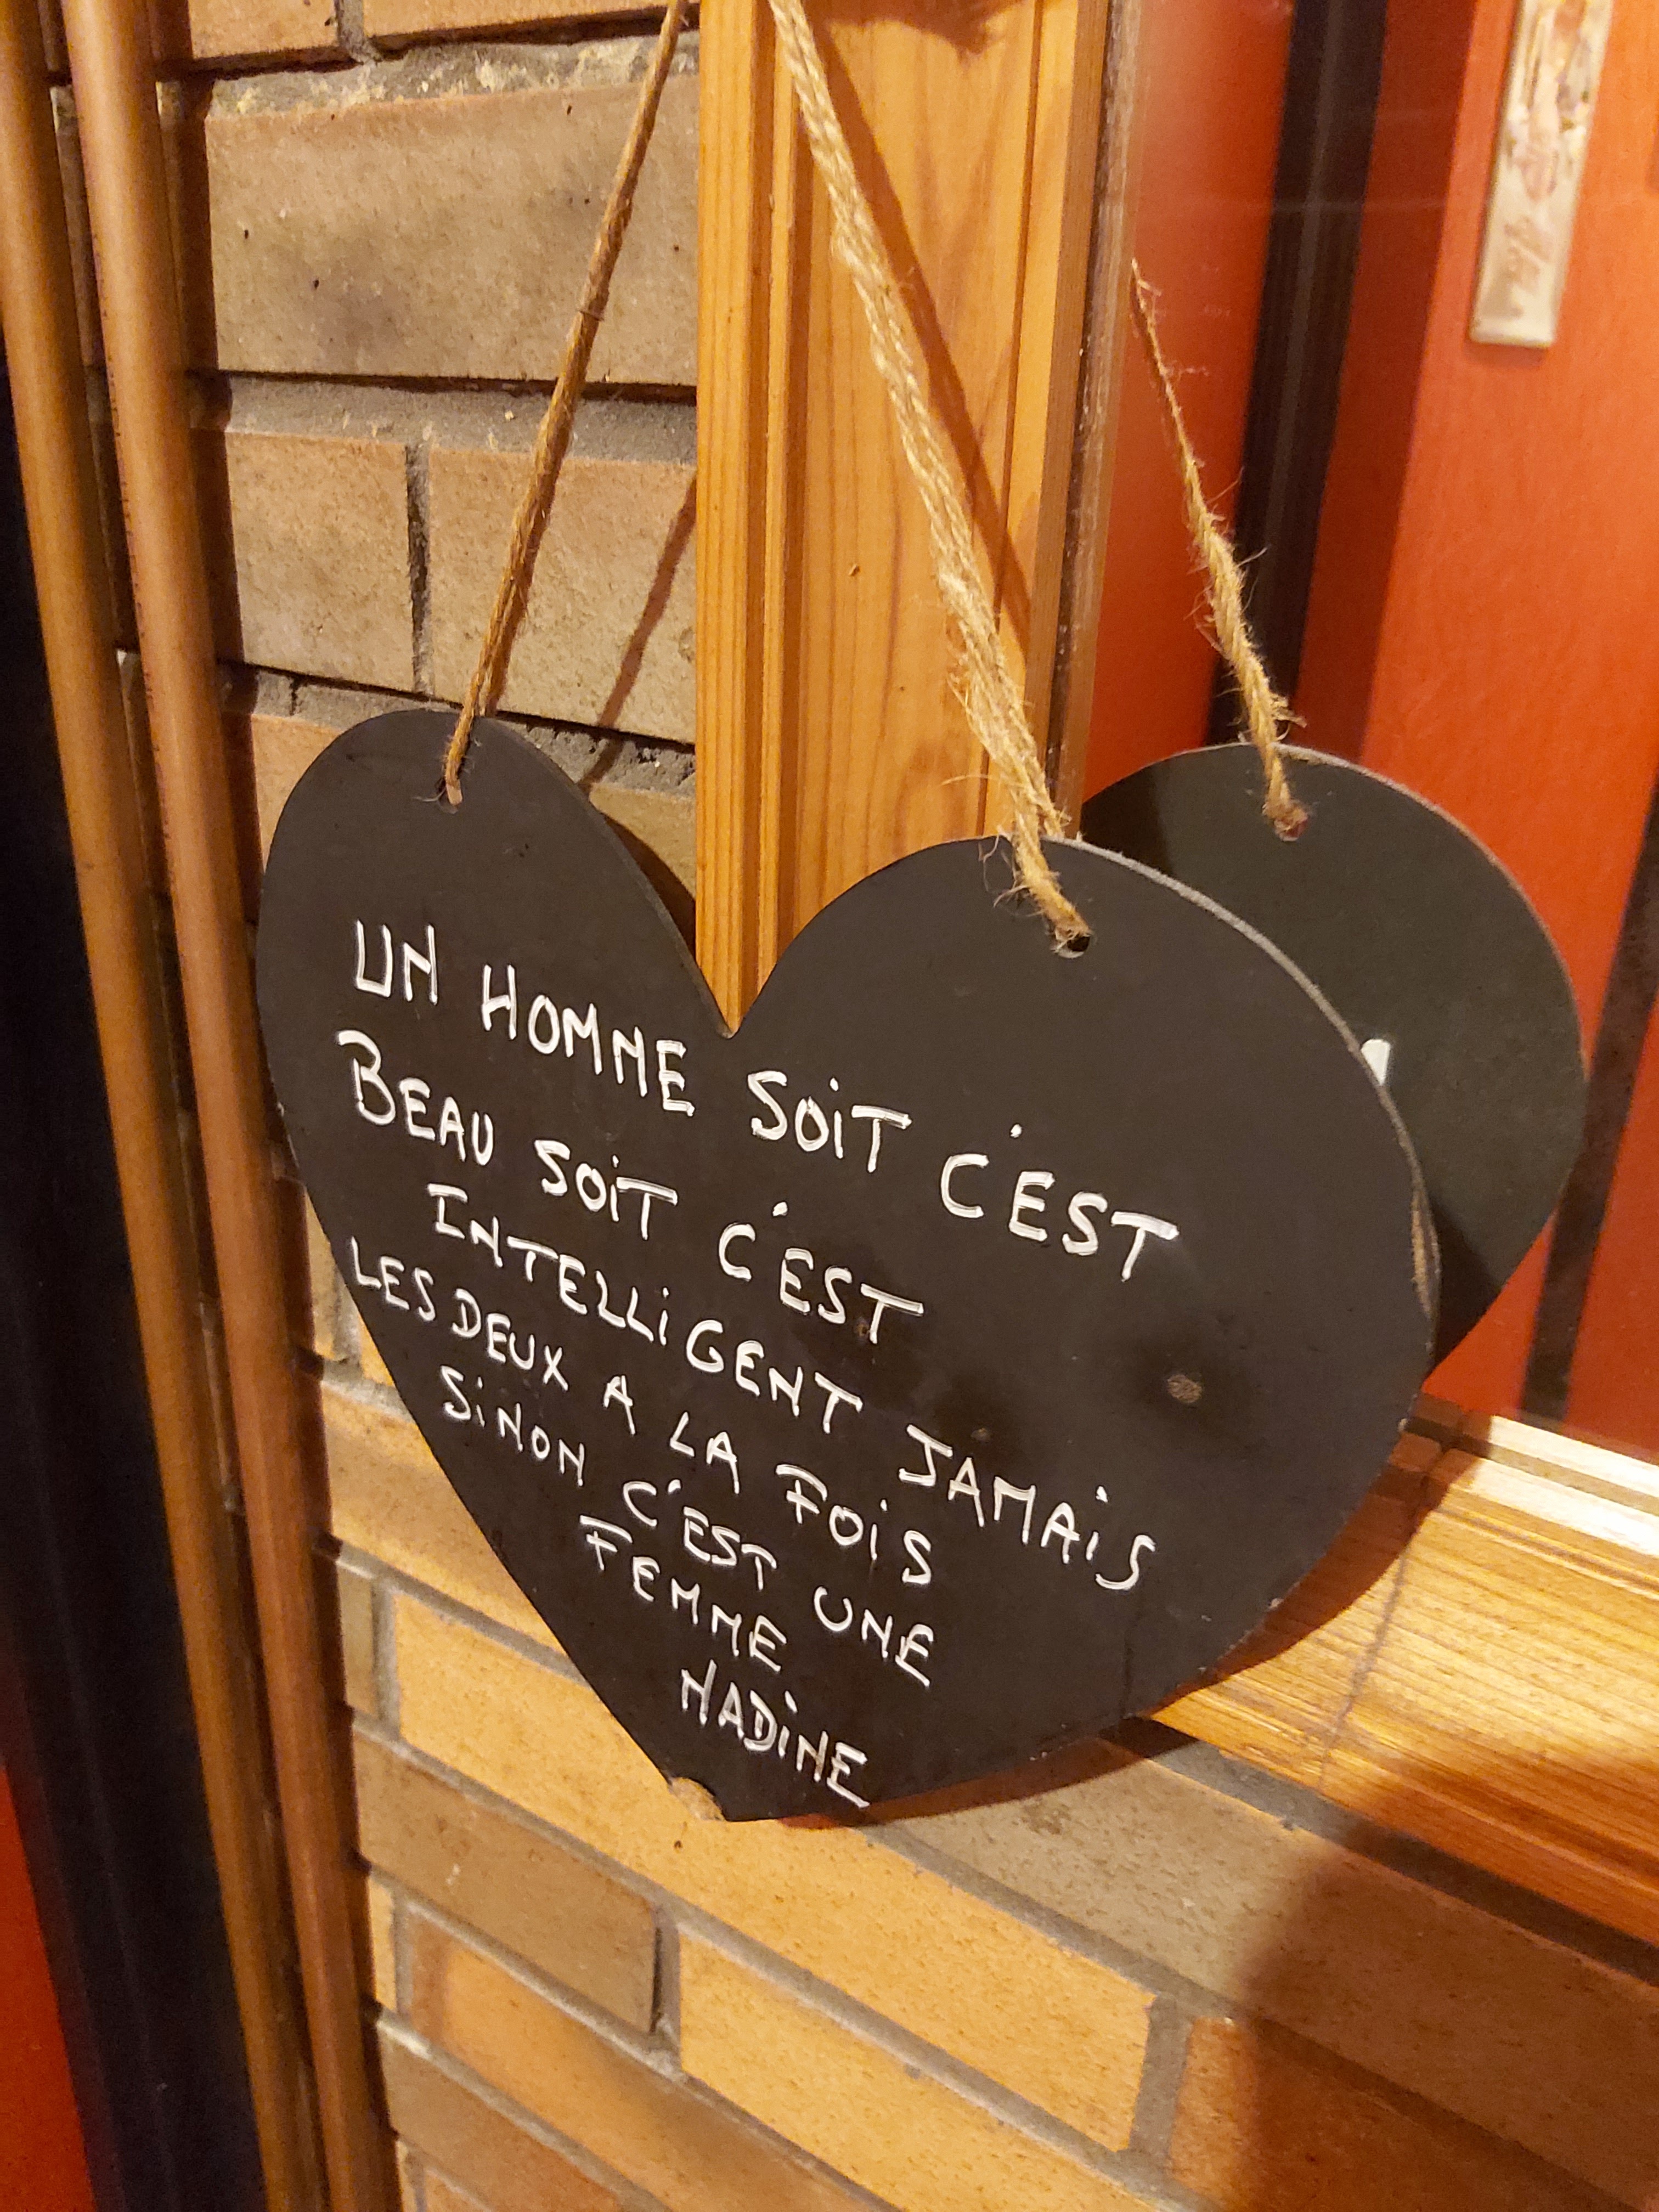 UN HOMME SOIT C'EST
BEAU SOIT C'EST
INTELLIGENT JAMAIS
LES DEUX A LA FOIS
SINON C'EST UNE
FEMME
NADINE